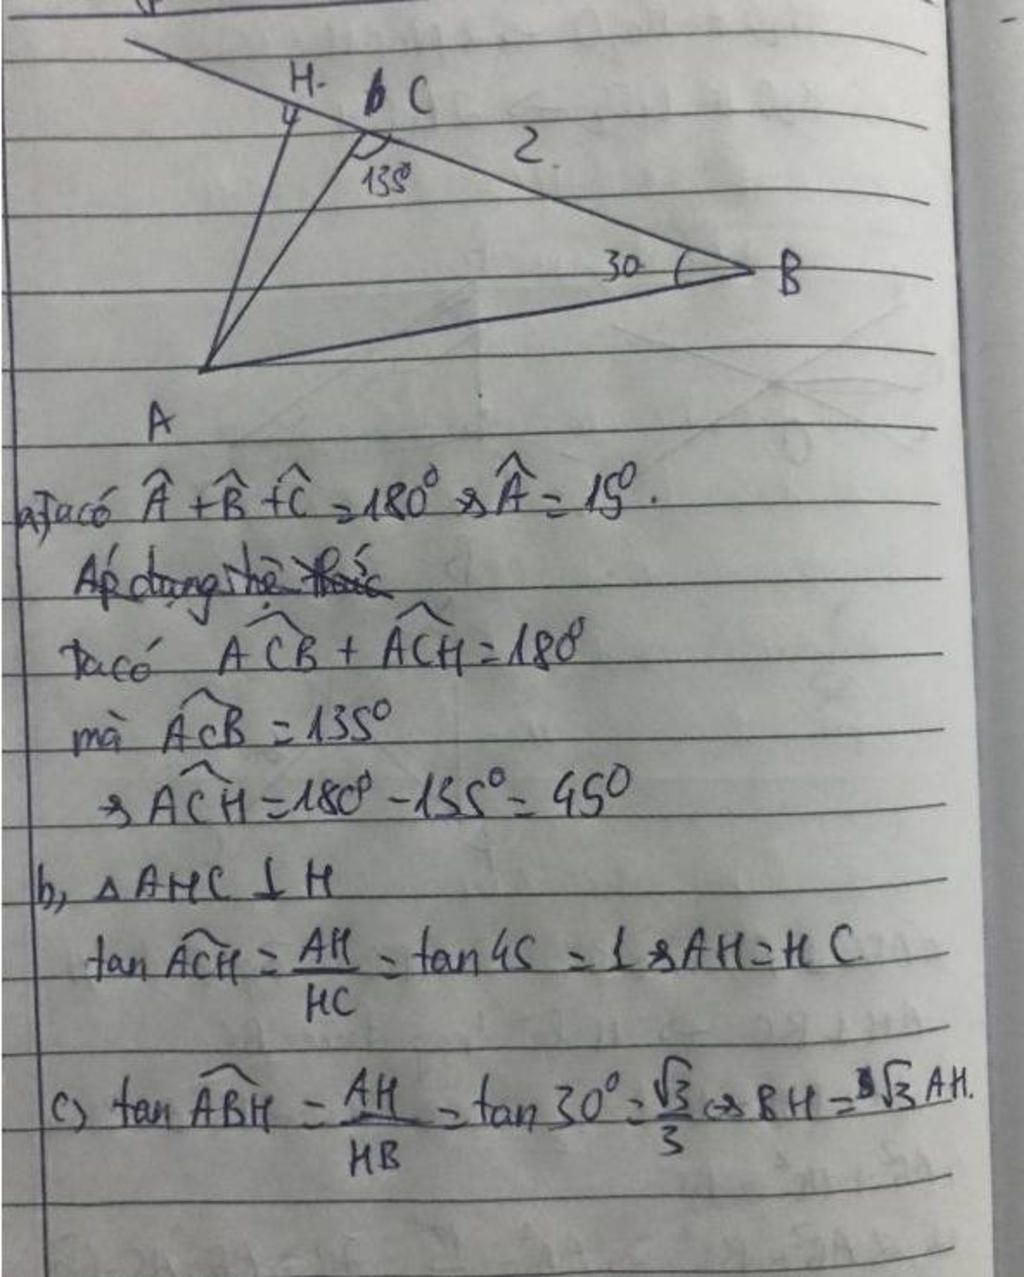 H. C
2.
135°
30
B
A
a, Ta có Â + B̂ + Ĉ = 180° => Â = 15°.
Áp dụng hệ thức
Ta có ACB + ACH = 180°
mà ACB = 135°
=> ACH = 180° - 135° = 45°
b, △ AHC ⊥ H
tan ACH = AH/HC = tan 45 = 1 => AH = HC
c) tan ABH = AH/HB = tan 30° = √3/3 => BH = √3 AH.